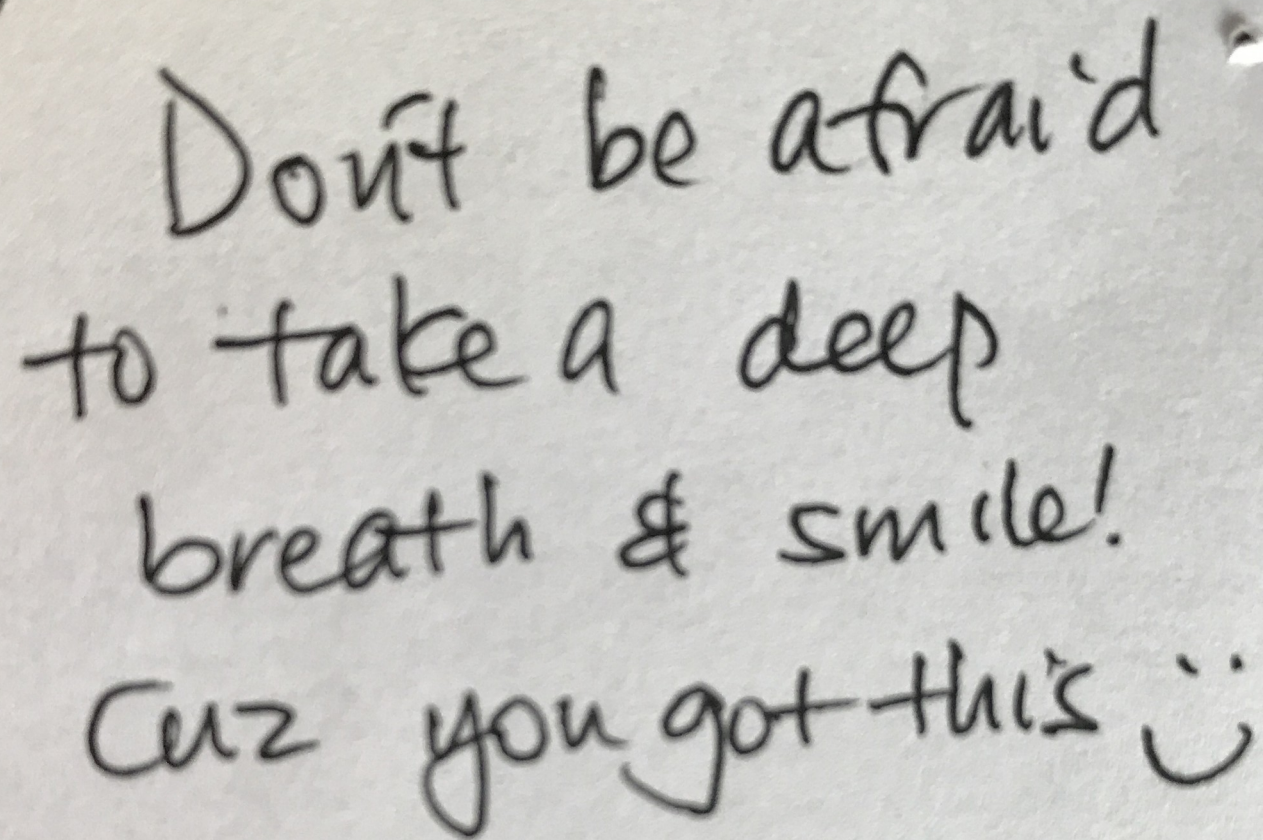 Don't be afraid
to take a deep
breath & smile!
Cuz you got this :)